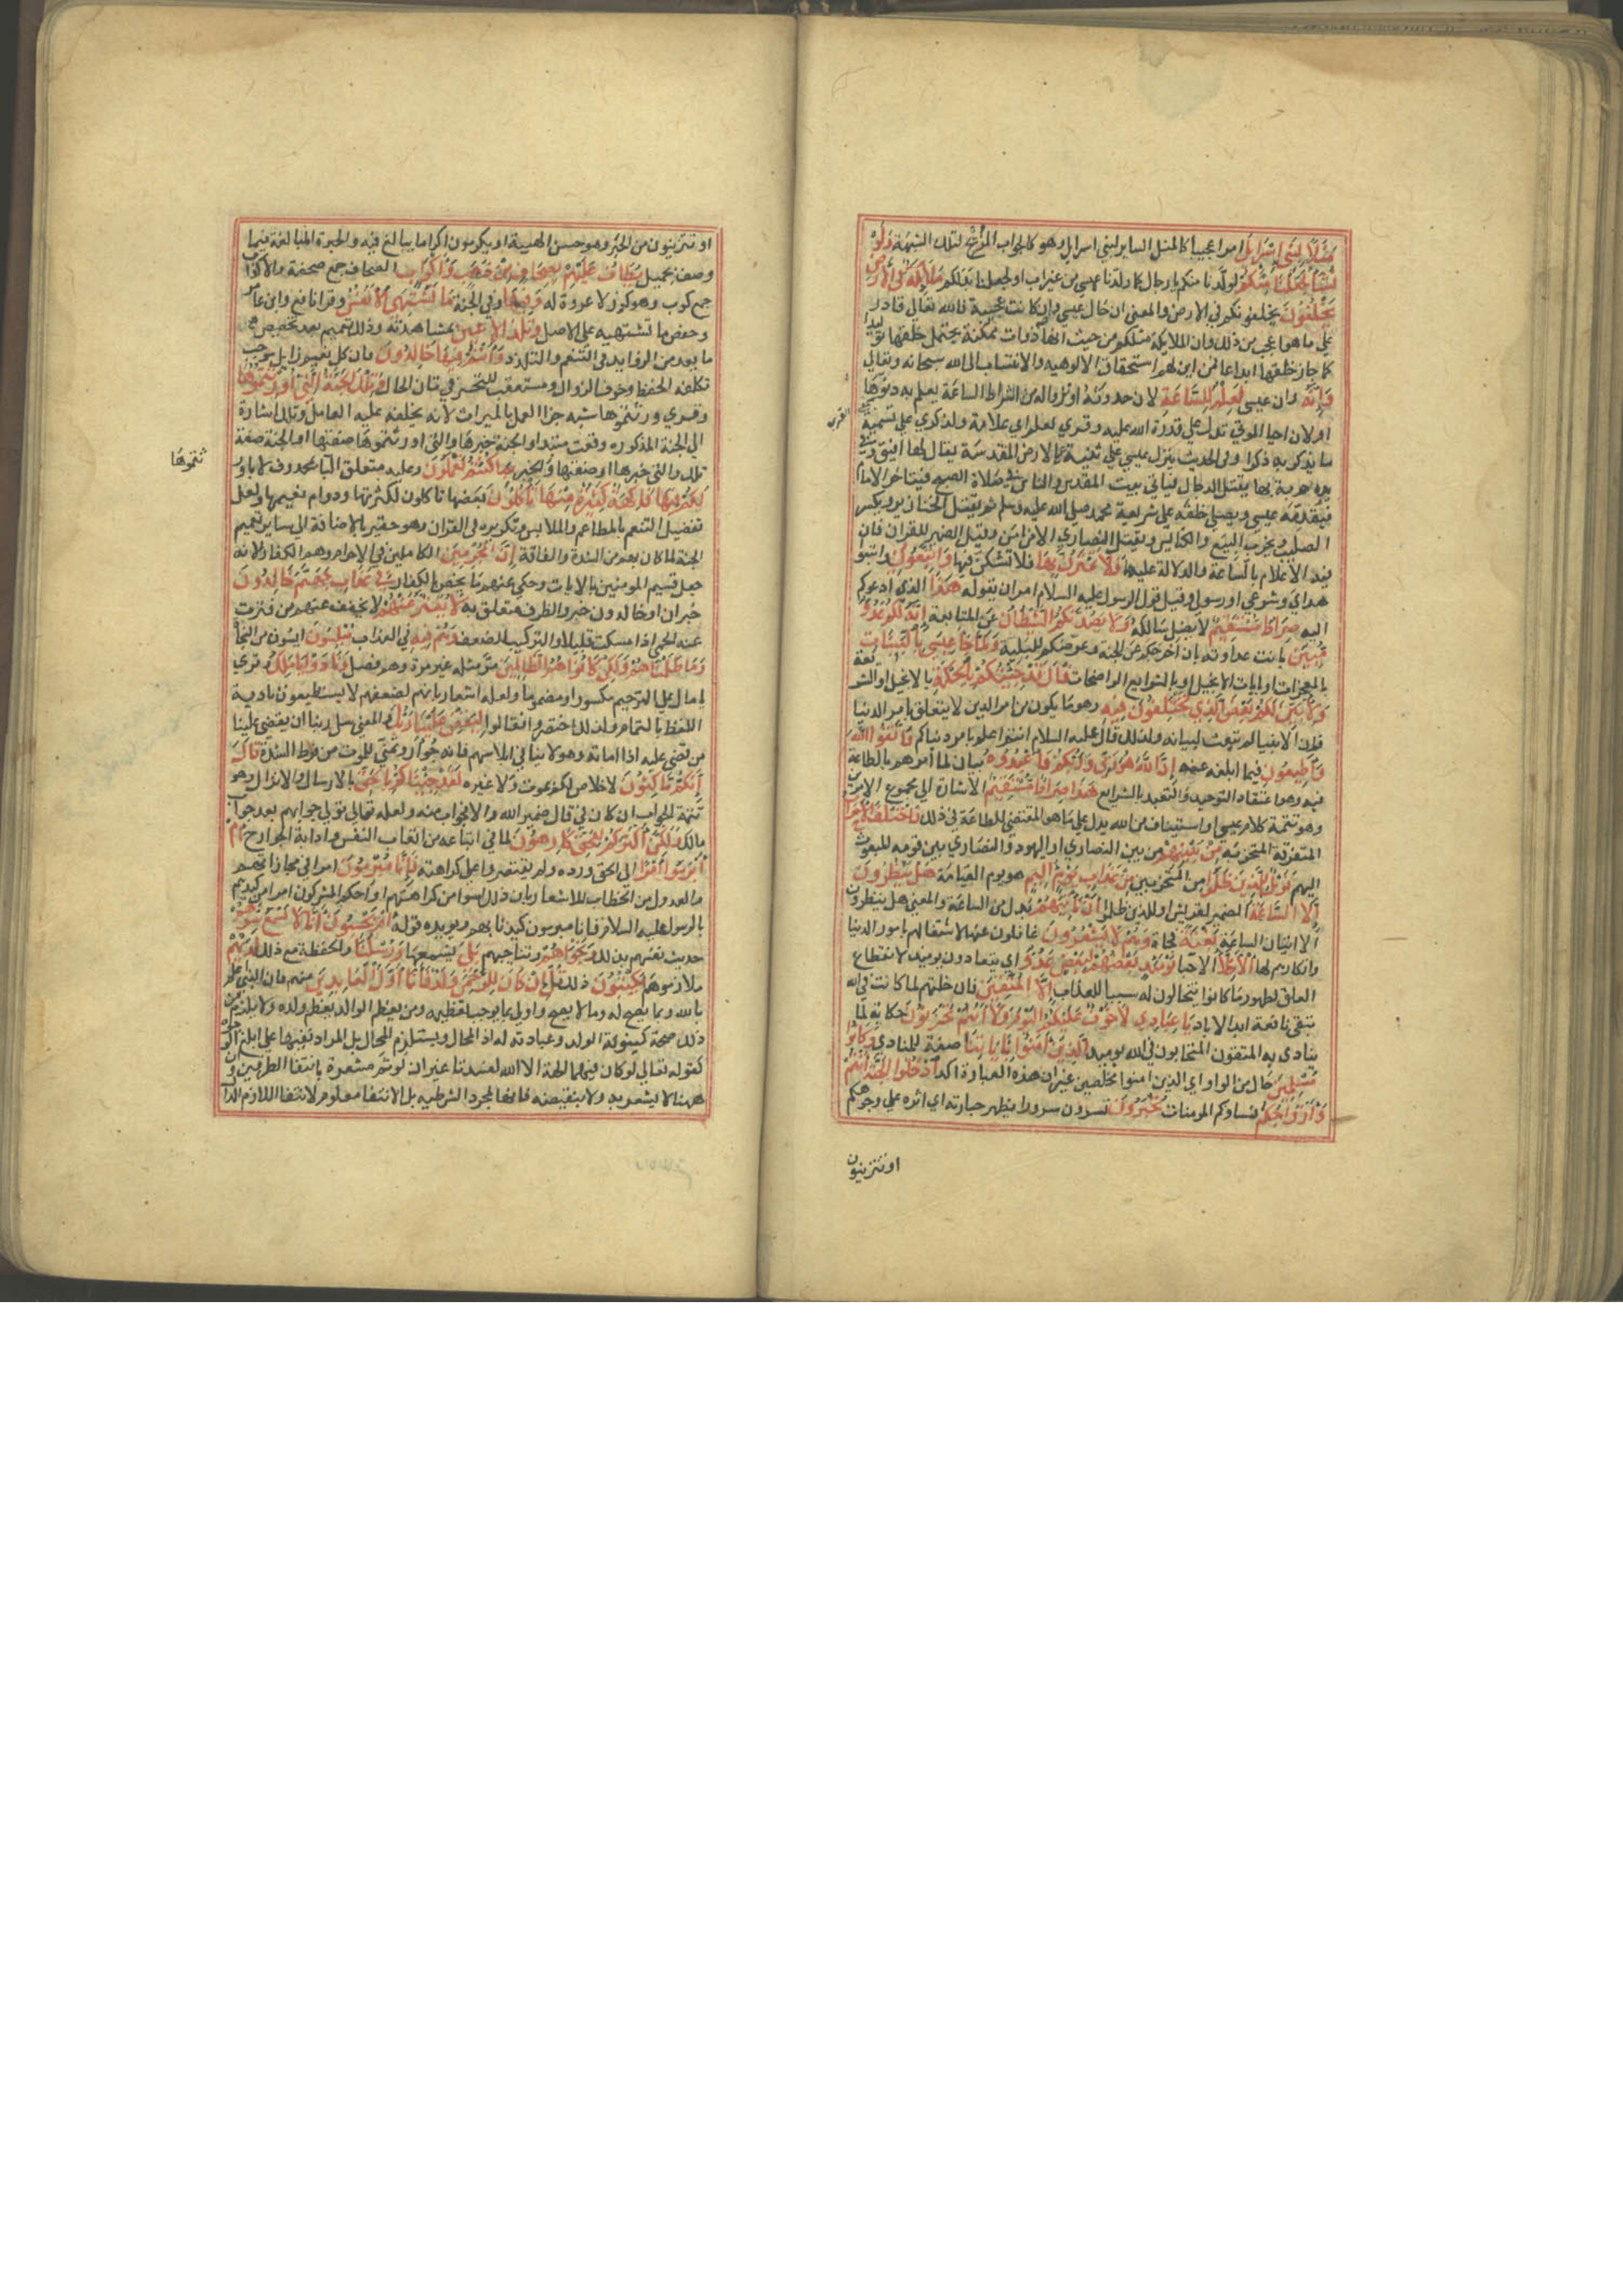 مَثَلًا لِبَنِي اِسْرَايلَ امرا عجيبا كالمثل الساير لبني اسرايل وهو كالجواب المزيح لتلك الشبهة وَلَوْ
نَشَاءُ لَجَعَلْنَا مِنْكُمْ لولدنا منكم يا رجال كما ولدنا عيسى من غير اب او لجعلنا بدلكم مَلَائِكَةً فِي الْأَرْضِ
يَخْلُفُونَ يخلفونكم في الارض والمعنى ان حال عيسى وان كانت عجيبة فالله تعالى قادر
على ما هو اعجب من ذلك وان الملايكة مثلكم من حيث انها ذوات ممكنة يحتمل خلقها توليدا
كما جاز خلقها ابداعا فمن اين لهم استحقاق الالوهيه والانتساب الى الله سبحانه وتعالى
وَاِنَّهُ وان عيسى لَعِلْمٌ لِلسَّاعَةِ لان حدوثه او نزوله من اشراط الساعة يعلم به دنوها
او لان احيا الموتى تدل على قدرة الله عليه وقري لعلم اي علامة ولذكر على تسمية
ما يذكر به ذكرا وفي الحديث ينزل عيسى على ثنية بالارض المقدسة يقال لها افيق وفي
يده حربة بها يقتل الدجال فياتي بيت المقدس والناس في صلاة الصبح فيتاخر الامام
فيقدمه عيسى ويصلي خلفه على شريعة محمد صلى الله عليه وسلم ثم يقتل الخنازير ويكسر
الصليب ويخرب البيع والكنايس ويقتل النصاري الا من امن وقيل الضمير للقران فان
فيه الاعلام بالساعة والدلالة عليها وَلَا تَمْتَرُنَّ بِهَا فلا تشكن فيها وَاتَّبِعُونِ واتبعوا
هداي وشرعي او رسولي وقيل قول الرسول عليه السلام امر ان يقوله هٰذَا الذي ادعوكم
اليه صِرَاطٌ مُسْتَقِيمٌ لا يضل سالكه وَلَا يَصُدَّنَّكُمُ الشَّيْطَانُ عن المتابعة اِنَّهُ لَكُمْ عَدُوٌّ
مُبِينٌ بانت عداوته بان اخرجكم عن الجنة وعرضكم للبلية وَلَمَّا جَا عِيسَى بِالْبَيِّنَاتِ
بالمعجزات او بايات الانجيل او بالشرايع الواضحات قَالَ قَدْ جِئْتُكُمْ بِالْحِكْمَةِ بالانجيل او الشريعة
وَلِأُبَيِّنَ لَكُمْ بَعْضَ الَّذِي تَخْتَلِفُونَ فِيهِ وهو ما يكون من امر الدين لا ما يتعلق بامر الدنيا
فان الانبيا لم تبعث لبيانه ولذلك قال عليه السلام انتم اعلم بامر دنياكم فَاتَّقُوا اللهَ
وَأَطِيعُونِ فيما ابلغه عنه اِنَّ اللهَ هُوَ رَبِّي وَرَبُّكُمْ فَاعْبُدُوهُ بيان لما امرهم بالطاعة
فيه وهو اعتقاد التوحيد والتعبد بالشرايع هٰذَا صِرَاطٌ مُسْتَقِيمٌ الاشارة الى مجموع الامرين
وهو تتمة كلام عيسى او استيناف من الله يدل على ما هو المقتضي للطاعة في ذلك فَاخْتَلَفَ الْأَحْزَابُ
المتفرقة المتحزبة مِنْ بَيْنِهِمْ من بين النصاري او اليهود والنصاري بين قومه المبعوث
اليهم فَوَيْلٌ لِلَّذِينَ ظَلَمُوا من المتحزبين مِنْ عَذَابِ يَوْمٍ أَلِيمٍ هو يوم القيامة هَلْ يَنْظُرُونَ
اِلَّا السَّاعَةَ الضمير لقريش او للذين ظلموا أَنْ تَأْتِيَهُمْ بدل من الساعة والمعنى هل ينظرون
الا اتيان الساعة بَغْتَةً فجاة وَهُمْ لَا يَشْعُرُونَ غافلون عنها لاشتغالهم بامور الدنيا
وانكارهم لها الْأَخِلَّاءُ الاحبا يَوْمَئِذٍ بَعْضُهُمْ لِبَعْضٍ عَدُوٌّ اي يتعادون يوميذ لانقطاع
العلق لظهور ما كانوا يتخالون له سببا للعذاب اِلَّا الْمُتَّقِينَ فان خلتهم لما كانت في الله
تبقى نافعة ابد الاباد يَا عِبَادِي لَا خَوْفٌ عَلَيْكُمُ الْيَوْمَ وَلَا أَنْتُمْ تَحْزَنُونَ حكاية لما
ينادى به المتقون المتحابون في الله يوميذ الَّذِينَ آمَنُوا بِآيَاتِنَا صفة للمنادي وَكَانُوا
مُسْلِمِينَ حال من الواو اي الذين امنوا مخلصين غير ان هذه العبارة اكد اُدْخُلُوا الْجَنَّةَ أَنْتُمْ
وَأَزْوَاجُكُمْ نساوكم المومنات تُحْبَرُونَ تسرون سرورا يظهر حباره اي اثره على وجوهكم
او تتزينون
او تتزينون من الحبر وهو حسن الهيية او يكرمون اكراما يبالغ فيه والحبرة المبالغة فيما
وصف بجميل يُطَافُ عَلَيْهِمْ بِصِحَافٍ مِنْ ذَهَبٍ وَأَكْوَابٍ الصحاف جمع صحفة والاكواب
جمع كوب وهو كوز لا عروة له وَفِيهَا وفي الجنة مَا تَشْتَهِي الْأَنْفُسُ وقرا نافع وابن عامر
وحفص ما تشتهيه على الاصل وَتَلَذُّ الْأَعْيُنُ بمشاهدته وذلك تعميم بعد تخصيص
ما يعد من الزوايد في التنعم والتلذذ وَأَنْتُمْ فِيهَا خَالِدُونَ فان كل نعيم زايل موجب
تكلفة الحفظ وخوف الزوال ومستعقب للتحسر في ثاني الحال وَتِلْكَ الْجَنَّةُ الَّتِي أُورِثْتُمُوهَا
وقري ورثتموها شبه جزا العمل بالميراث لانه يخلفه عليه العامل وتلك اشارة
الى الجنة المذكوره وقعت مبتدا والجنة خبرها والتي اورثتموها صفتها او الجنة صفة
ثتموها
تلك والتي خبرها او صفتها والخبر بِمَا كُنْتُمْ تَعْمَلُونَ وعليه متعلق البا بمحذوف لا باورثتموها
لَكُمْ فِيهَا فَاكِهَةٌ كَثِيرَةٌ مِنْهَا تَأْكُلُونَ بعضها تاكلون لكثرتها ودوام نعيمها ولعل
تفضيل التنعم بالمطاعم والملابس وتكريره في القران وهو حقير بالاضافة الى ساير نعيم
الجنة لما كان بهم من الشدة والفاقة اِنَّ الْمُجْرِمِينَ الكاملين في الاجرام وهم الكفار لانه
جعل قسيم المومنين بالايات وحكى عنهم ما يخص بالكفار فِي عَذَابِ جَهَنَّمَ خَالِدُونَ
خبر ان او خالدون خبر والظرف متعلق به لَا يُفَتَّرُ عَنْهُمْ لا يخفف عنهم من فترت
عنه الحمى اذا سكنت قليلا والتركيب للضعف وَهُمْ فِيهِ في العذاب مُبْلِسُونَ ايسون من النجاة
وَمَا ظَلَمْنَاهُمْ وَلٰكِنْ كَانُوا هُمُ الظَّالِمِينَ مر مثله غير مرة وهم فصل وَنَادَوْا يَا مَالِكُ وقري
يا مال على الترخيم مكسورا ومضموما ولعله اشعار بانهم لضعفهم لا يستطيعون تادية
اللفظ بالتمام ولذلك اختصروا فقالوا لِيَقْضِ عَلَيْنَا رَبُّكَ والمعنى سل ربنا ان يقضي علينا
من قضى عليه اذا اماته وهو لا ينافي ابلاسهم فانه جوار وتمني للموت من فرط الشدة قَالَ
اِنَّكُمْ مَاكِثُونَ لا خلاص لكم بموت ولا غيره لَقَدْ جِئْنَاكُمْ بِالْحَقِّ بالارسال والانزال وهو
تتمة الجواب ان كان في قال ضمير الله والا فجواب منه ولعله تعالى تولى جوابهم بعد جواب
مالك وَلٰكِنَّ أَكْثَرَكُمْ لِلْحَقِّ كَارِهُونَ لما في اتباعه من اتعاب النفس واداب الجوارح أَمْ
أَبْرَمُوا أَمْرًا في تكذيب الحق ورده ولم يقتصروا على كراهته فَاِنَّا مُبْرِمُونَ امرا في مجازاتهم
والعدول عن الخطاب للاشعار بان ذلك اسوا من كراهتهم او ام احكم المشركون امرا من كيدهم
بالرسول عليه السلام فانا مبرمون كيدنا بهم ويويده قوله أَمْ يَحْسَبُونَ أَنَّا لَا نَسْمَعُ سِرَّهُمْ
حديث نفسهم بذلك وَنَجْوَاهُمْ وتناجيهم بَلَى نسمعها وَرُسُلُنَا والحفظة مع ذلك لَدَيْهِمْ
ملازموهم يَكْتُبُونَ ذلك قُلْ اِنْ كَانَ لِلرَّحْمٰنِ وَلَدٌ فَأَنَا أَوَّلُ الْعَابِدِينَ منهم فان النبي يكون اعلم
بالله وبما يصح له وما لا يصح واولى بما يوجب تعظيمه ومن تعظيم الوالد تعظيم ولده ولا يلزم من
ذلك صحة كينونة الولد وعبادته له اذ المحال قد يستلزم المحال بل المراد نفيها على ابلغ الوجوه
كقوله تعالى لو كان فيهما الهة الا الله لفسدتا غير ان لو ثم مشعرة بانتفا الطرفين وان
ههنا لا يشعر به ولا بنقيضه فانها لمجرد الشرطيه بل الانتفا معلوم لانتفا اللازم الدال